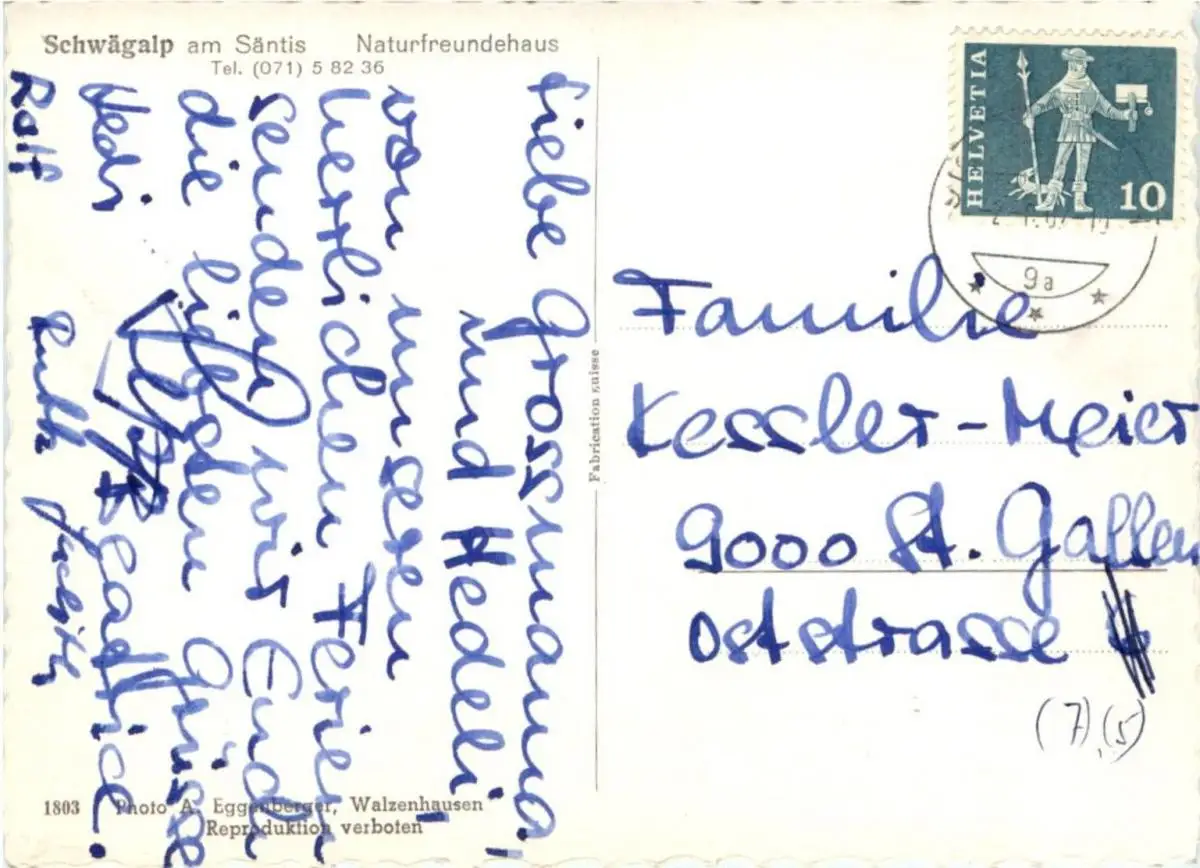 Schwägalp am Säntis Naturfreundehaus
Tel. (071) 5 82 36
Liebe Grossmama
und Hedeli!
von unseren
herzlichen Ferien
senden wir Euch
die liebsten Grüsse
Hedi Beatrice.
Rolf Ruth Judith
HELVETIA
10
9a
Familie
Kessler-Meier
9000 St. Gallen
Oststrasse
(7), (5)
Fabrication suisse
1803 Photo A. Eggenberger, Walzenhausen
Reproduktion verboten